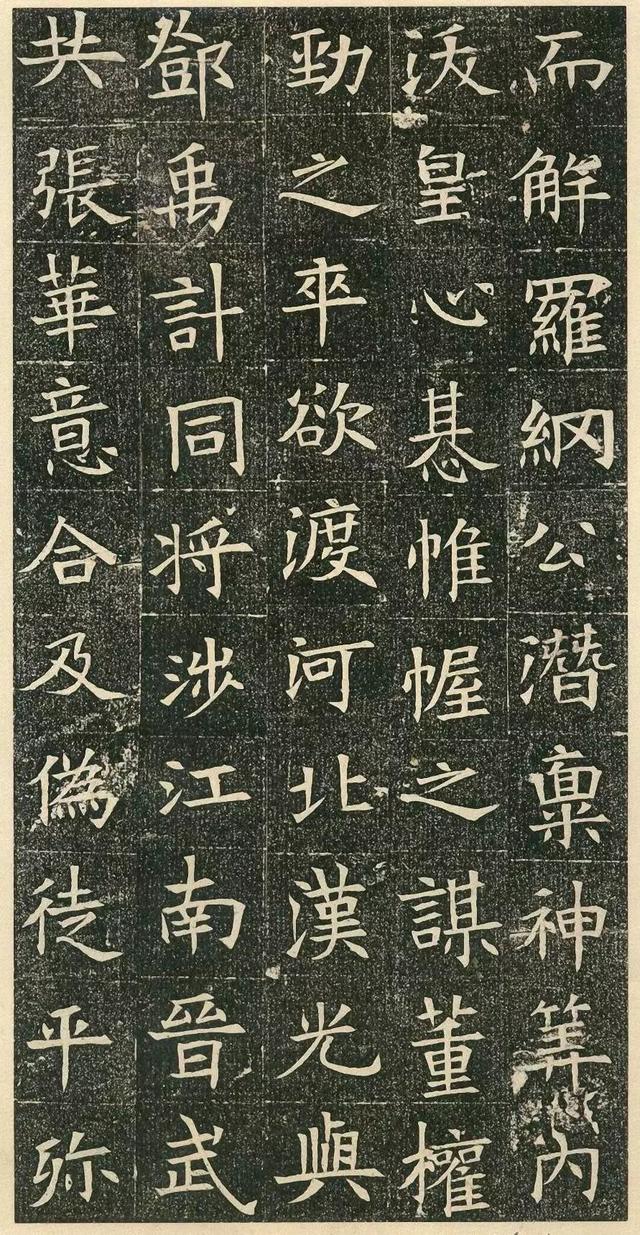 而解羅網公潛稟神筭内
沃皇心惎帷幄之謀董權
勁之卒欲渡河北漢光與
鄧禹計同將涉江南晉武
共張華意合及僞徒平殄